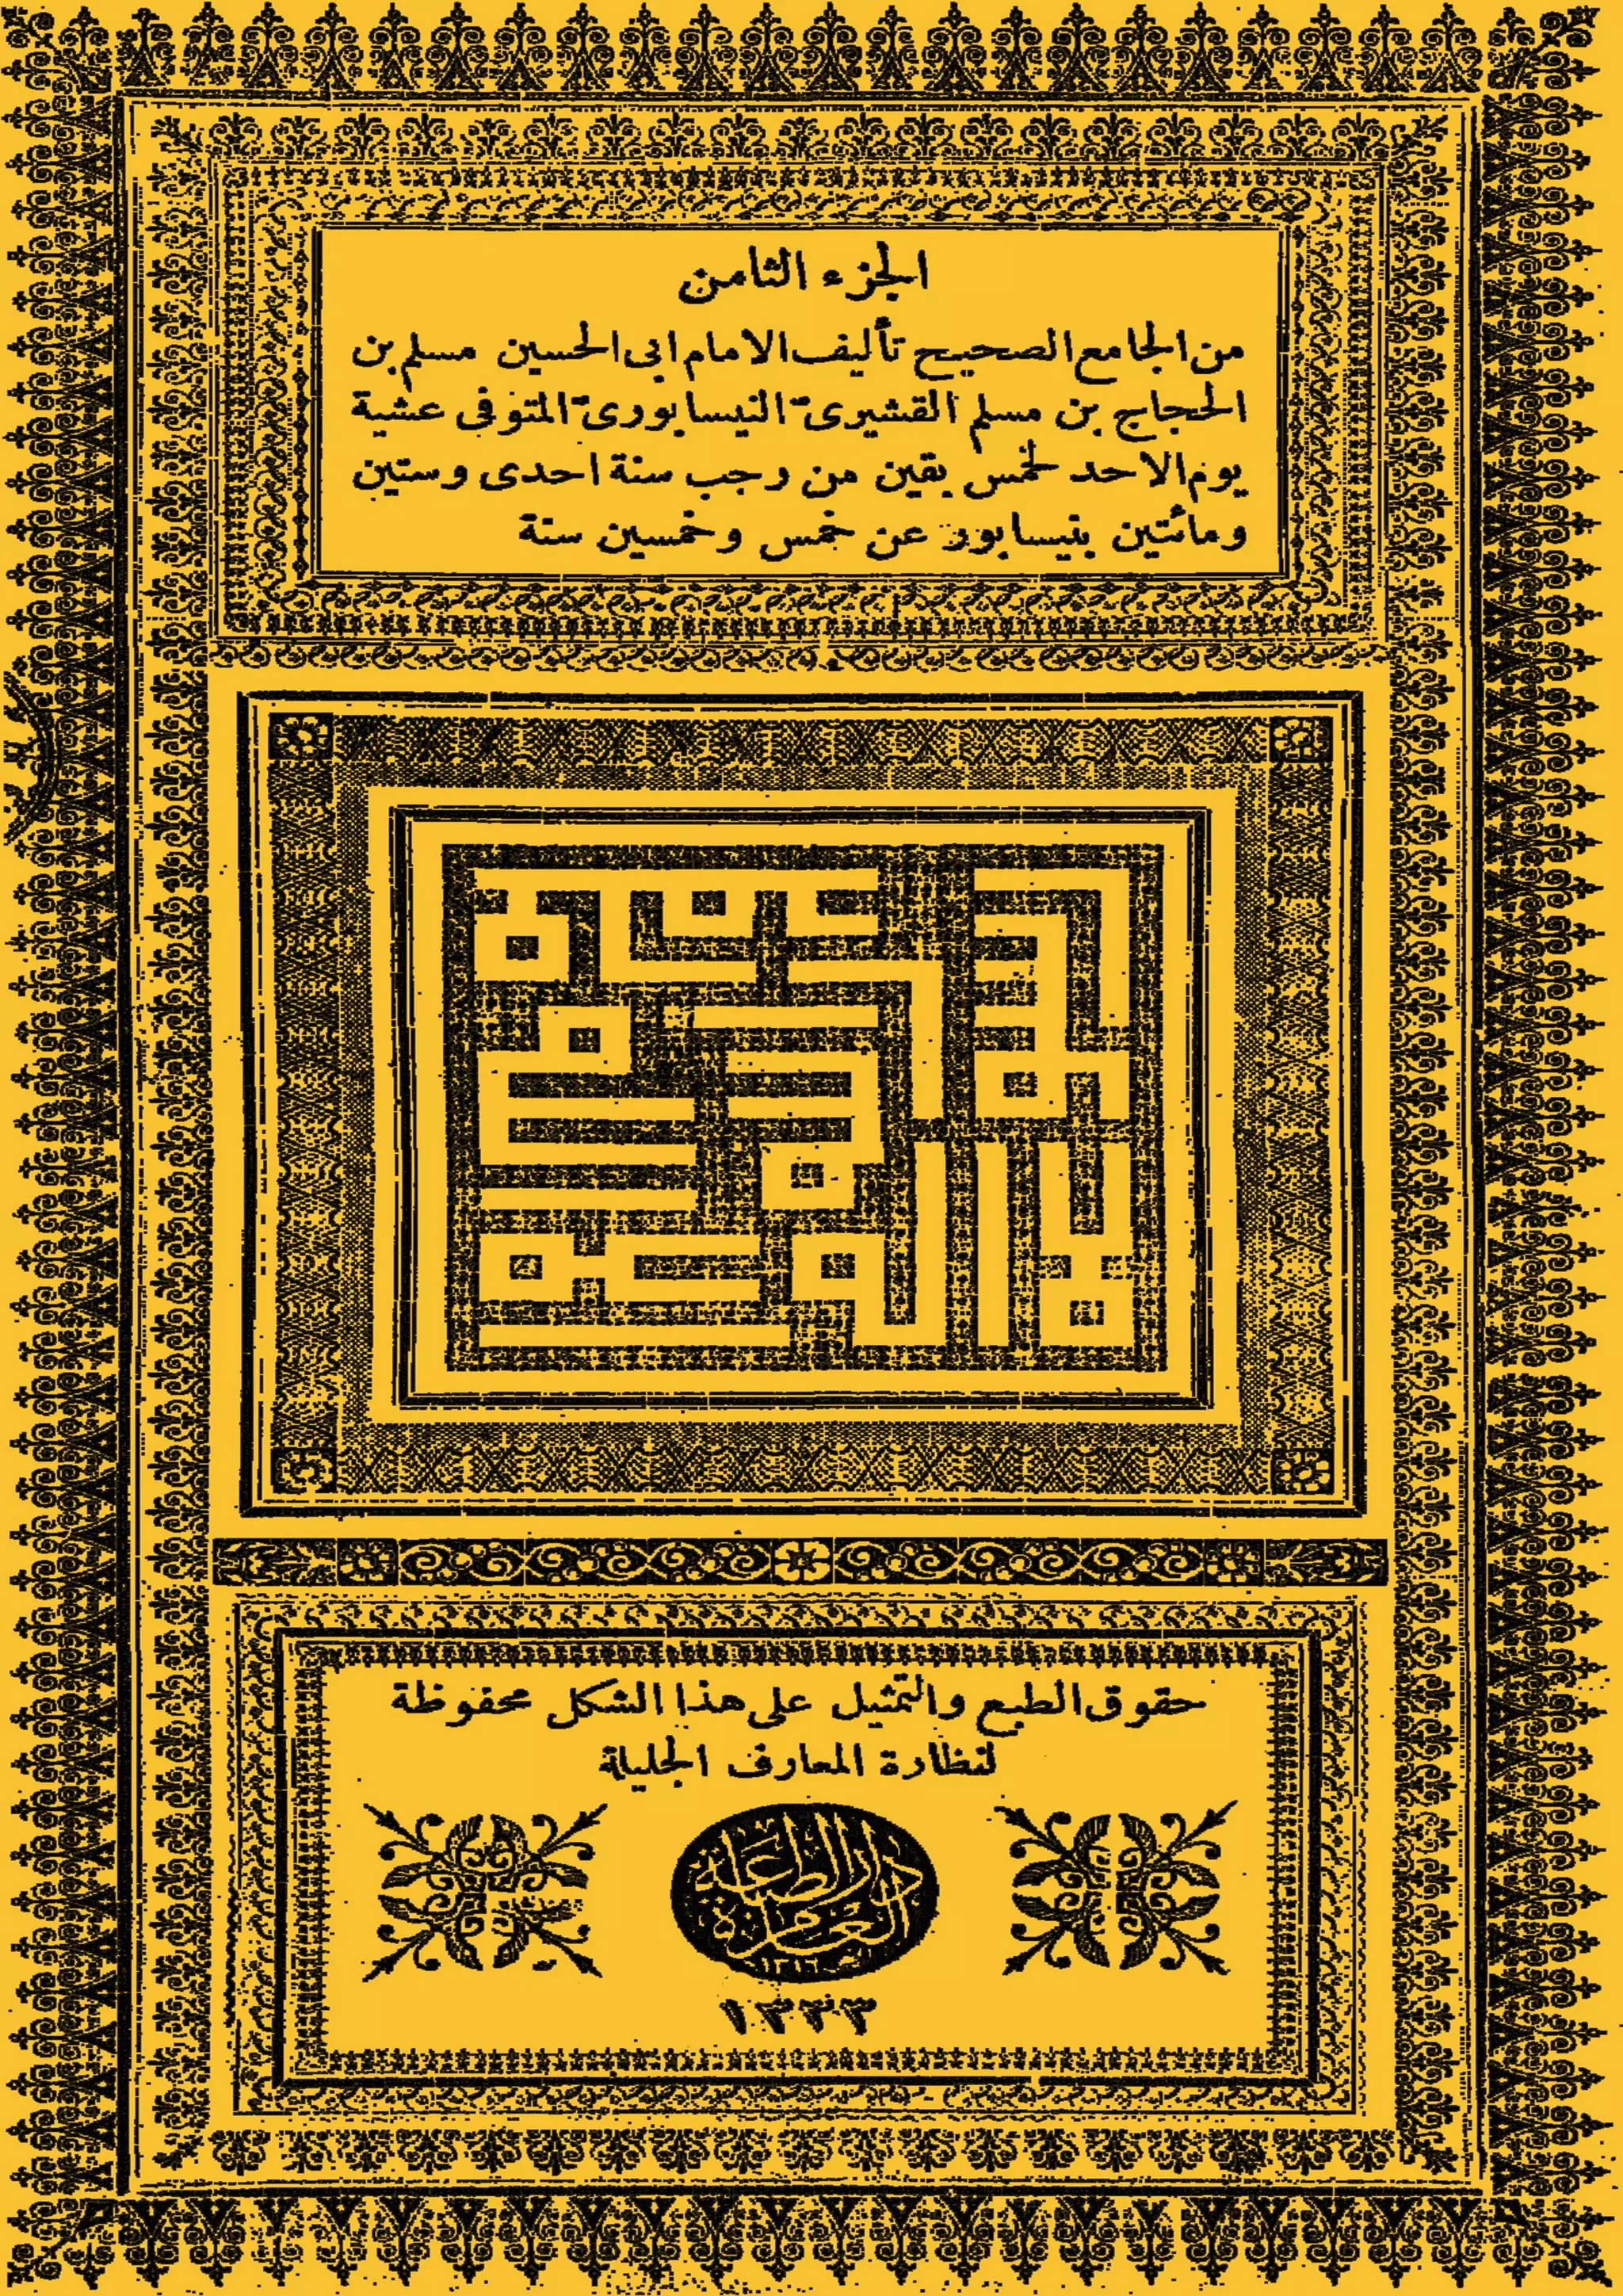 الجزء الثامن
من الجامع الصحيح تأليف الامام ابى الحسين مسلم بن
الحجاج بن مسلم القشيرىّ النيسابورىّ المتوفى عشية
يوم الاحد لخمس بقين من رجب سنة احدى وستين
ومائتين بنيسابور عن خمس وخمسين سنة
حقوق الطبع والتمثيل على هذا الشكل محفوظة
لنظارة المعارف الجليلة
دار الطباعة العامرة
١٣٣٣